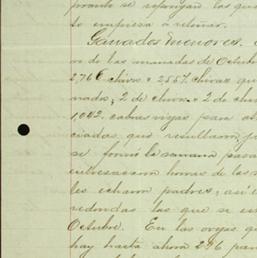 pronto se repongan los que
to empieza a retoñar.
Ganados menores.
or de las manadas de Octubre
2,766 chivos e 2557 chivas que
nada; 2 de chivos e 2 de chiv
1,042 cabras viejas para
ciadas que resultaron
se formó la semana pasa
horras de las
les echaron padres; así
redondas las que se
Octubre. En las ovejas qu
hay hasta ahora 296 par